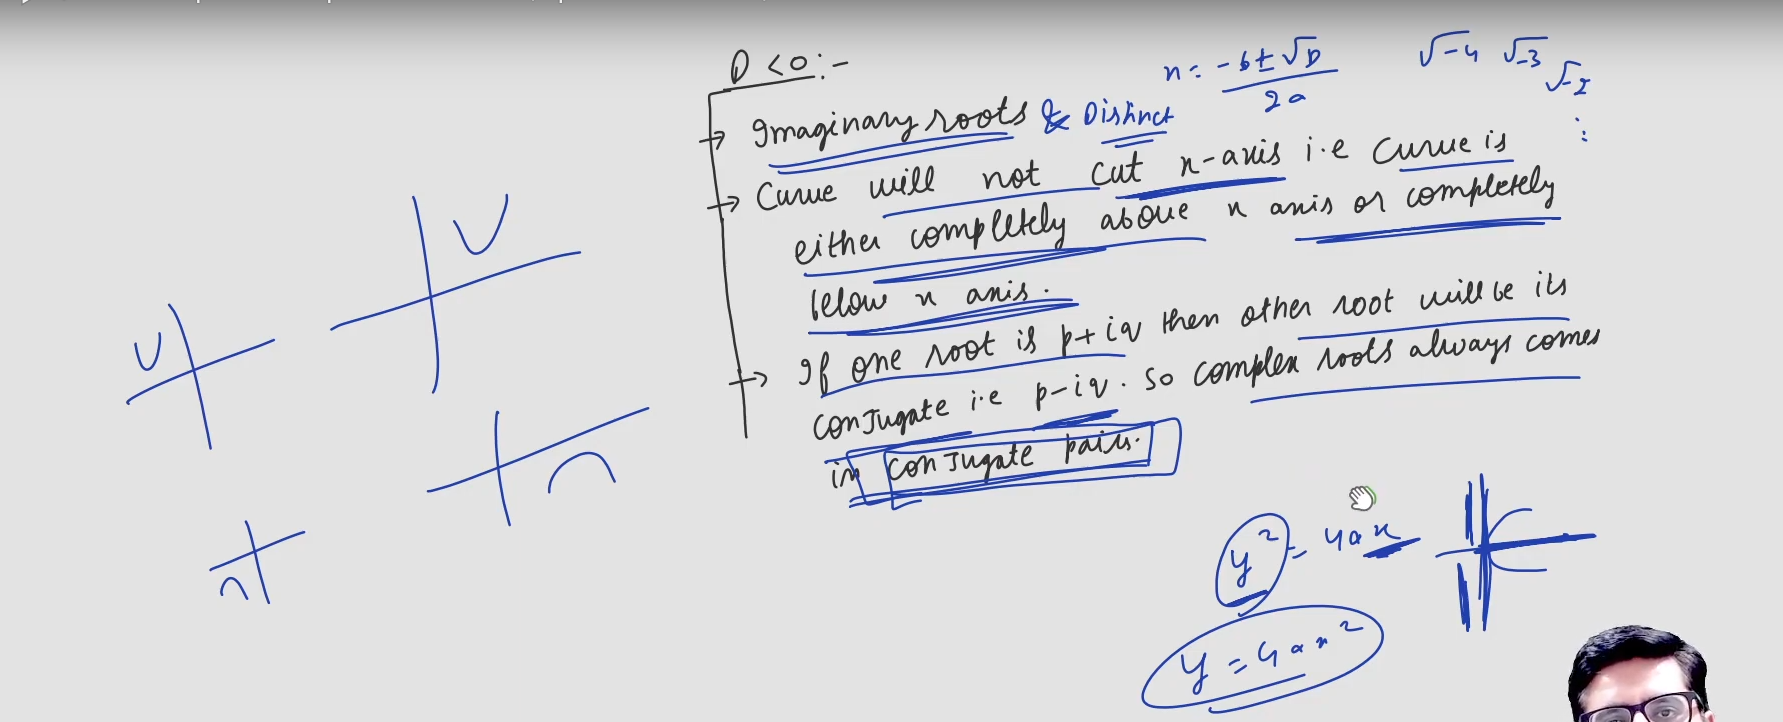 D < 0 :-
x = -b ± √D / 2a
√-4 √-3 √-2
Imaginary roots & Distinct
Curve will not cut x-axis i.e curve is
either completely above x axis or completely
below x axis.
If one root is p+iq then other root will be its
conjugate i.e p-iq. So complex roots always comes
in conjugate pairs.
y² = 4ax
y = 4ax²